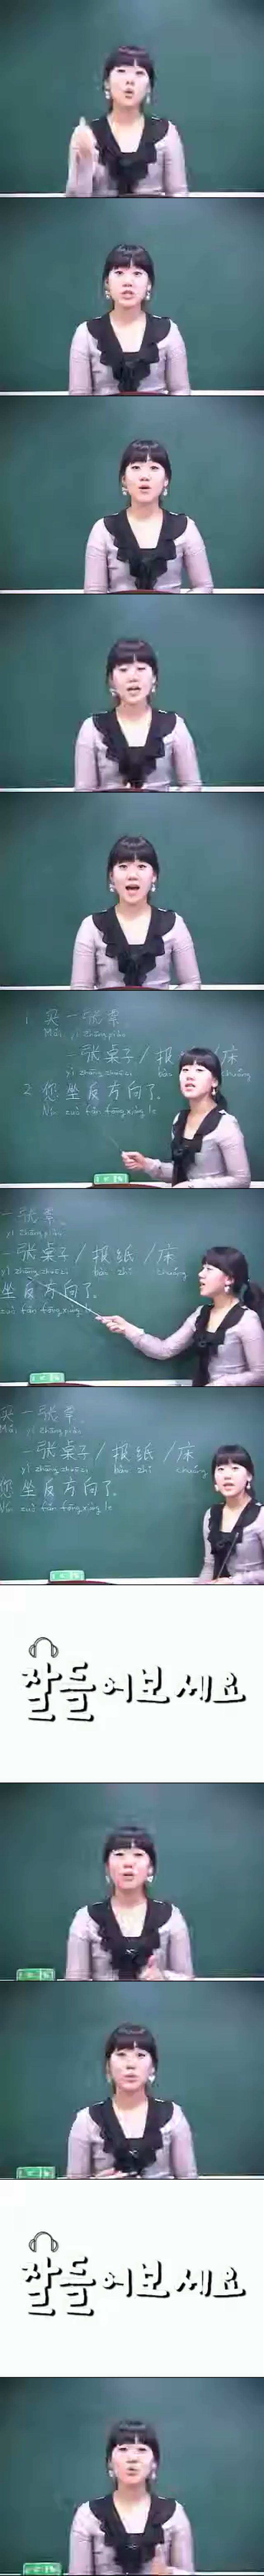 1 买一张票。
Mǎi yì zhāng piào
一张桌子 / 报 / 床
yì zhāng zhuōzi bào chuáng
2 您坐反方向了。
Nín zuò fǎn fāngxiàng le
一张票。
yì zhāng piào
一张桌子 / 报纸 / 床
yì zhāng zhuōzi bào zhǐ chuáng
坐反方向了。
zuò fǎn fāngxiàng le
买一张票。
Mǎi yì zhāng piào
一张桌子 / 报纸 / 床
yì zhāng zhuōzi bào zhǐ chuáng
您坐反方向了。
Nín zuò fǎn fāngxiàng le
잘 들어보세요
잘 들어보세요